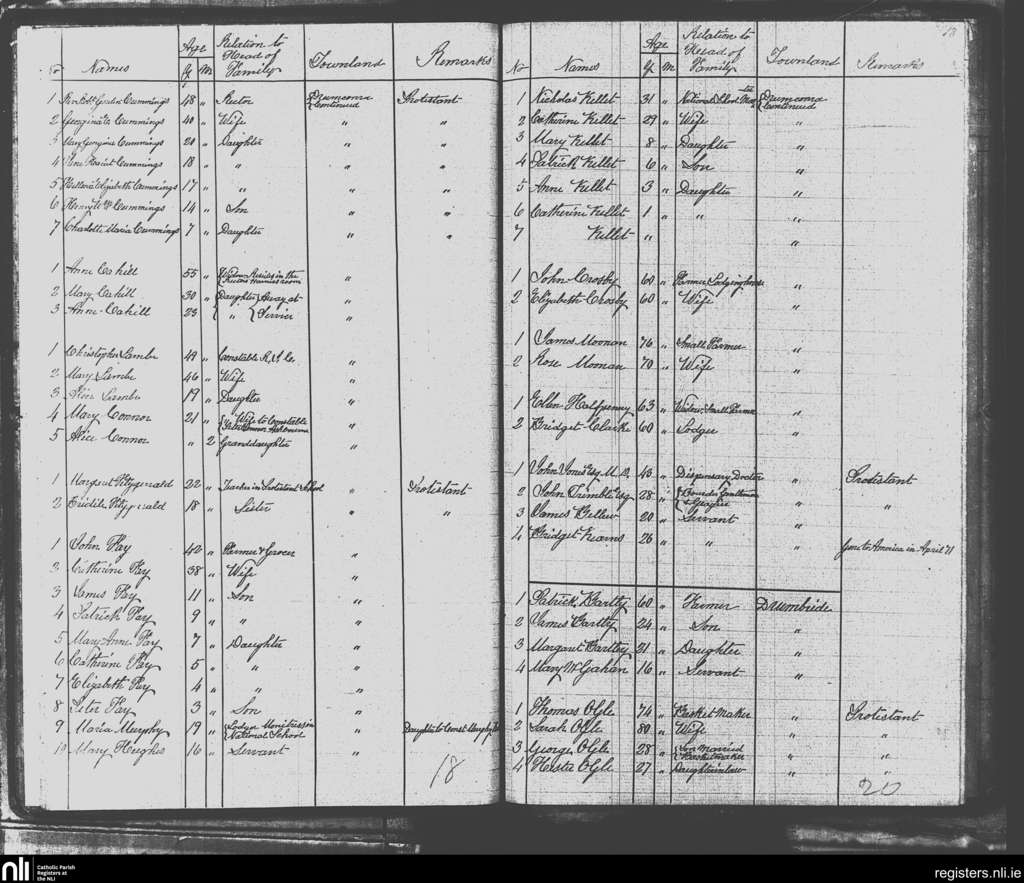 No Names Age Y M Relation to Head of Family Townland Remarks
1 Gordon Cummings 48 " Rector Drumconra Continued Protestant
2 Georgina Cummings 40 " Wife " "
3 Mary Georgina Cummings 20 " Daughter " "
4 Jane Harriet Cummings 18 " " " "
5 Elizabeth Cummings 17 " " " "
6 Cummings 14 " Son " "
7 Charlotte Maria Cummings 7 " Daughter " "
1 Anne Cahill 55 " Widow Resides in the Rectors room "
2 Mary Cahill 30 " Daughter Away at "
3 Anne Cahill 23 " " Service "
1 Christopher Lambe 49 " Constable R.I.C. "
2 Mary Lambe 46 " Wife "
3 Lambe 19 " Daughter "
4 Mary Connor 21 " Wife to Constable Connor "
5 Alice Connor " 2 Granddaughter "
1 Margaret Fitzgerald 22 " Teacher in Protestant School " Protestant
2 Fitzgerald 18 " Sister " "
1 John Fay 42 " Farmer & Grocer "
2 Catherine Fay 38 " Wife "
3 James Fay 11 " Son "
4 Patrick Fay 9 " " "
5 Mary Anne Fay 7 " Daughter "
6 Catherine Fay 5 " " "
7 Elizabeth Fay 4 " " "
8 Peter Fay 3 " Son "
9 Maria Murphy 19 " Lodger Monitress in National School " Daughter to Const. Murphy
10 Mary Hughes 16 " Servant "
18
No Names Age Y M Relation to Head of Family Townland Remarks
1 Nicholas Kellet 31 " National School Drumconra Continued
2 Catherine Kellet 29 " Wife "
3 Mary Kellet 8 " Daughter "
4 Patrick Kellet 6 " Son "
5 Anne Kellet 3 " Daughter "
6 Catherine Kellet 1 " " "
7 Kellet " "
1 John Crosby 60 " Farmer Lodginghouse "
2 Elizabeth Crosby 60 " Wife "
1 James Moonan 76 " Small Farmer "
2 Rose Moonan 70 " Wife "
1 Ellen Halfpenny 63 " Widow Small Farmer "
2 Bridget Clarke 60 " Lodger "
1 John Jones Esq. M.D. 45 " Dispensary Doctor " Protestant
2 John Trimble Esq 28 " Boarder Gentleman " "
3 James Bellew 20 " Servant "
4 Bridget Kearns 26 " " " gone to America in April 71
1 Patrick Bartley 60 " Farmer Drumbride
2 James Bartley 24 " Son "
3 Margaret Bartley 21 " Daughter "
4 Mary McGahan 16 " Servant "
1 Thomas Ogle 74 " Basket Maker " Protestant
2 Sarah Ogle 80 " Wife " "
3 George Ogle 28 " Son Married Basketmaker " "
4 Hester Ogle 27 " Daughterinlaw " "
20
nli Catholic Parish Registers at the NLI
registers.nli.ie